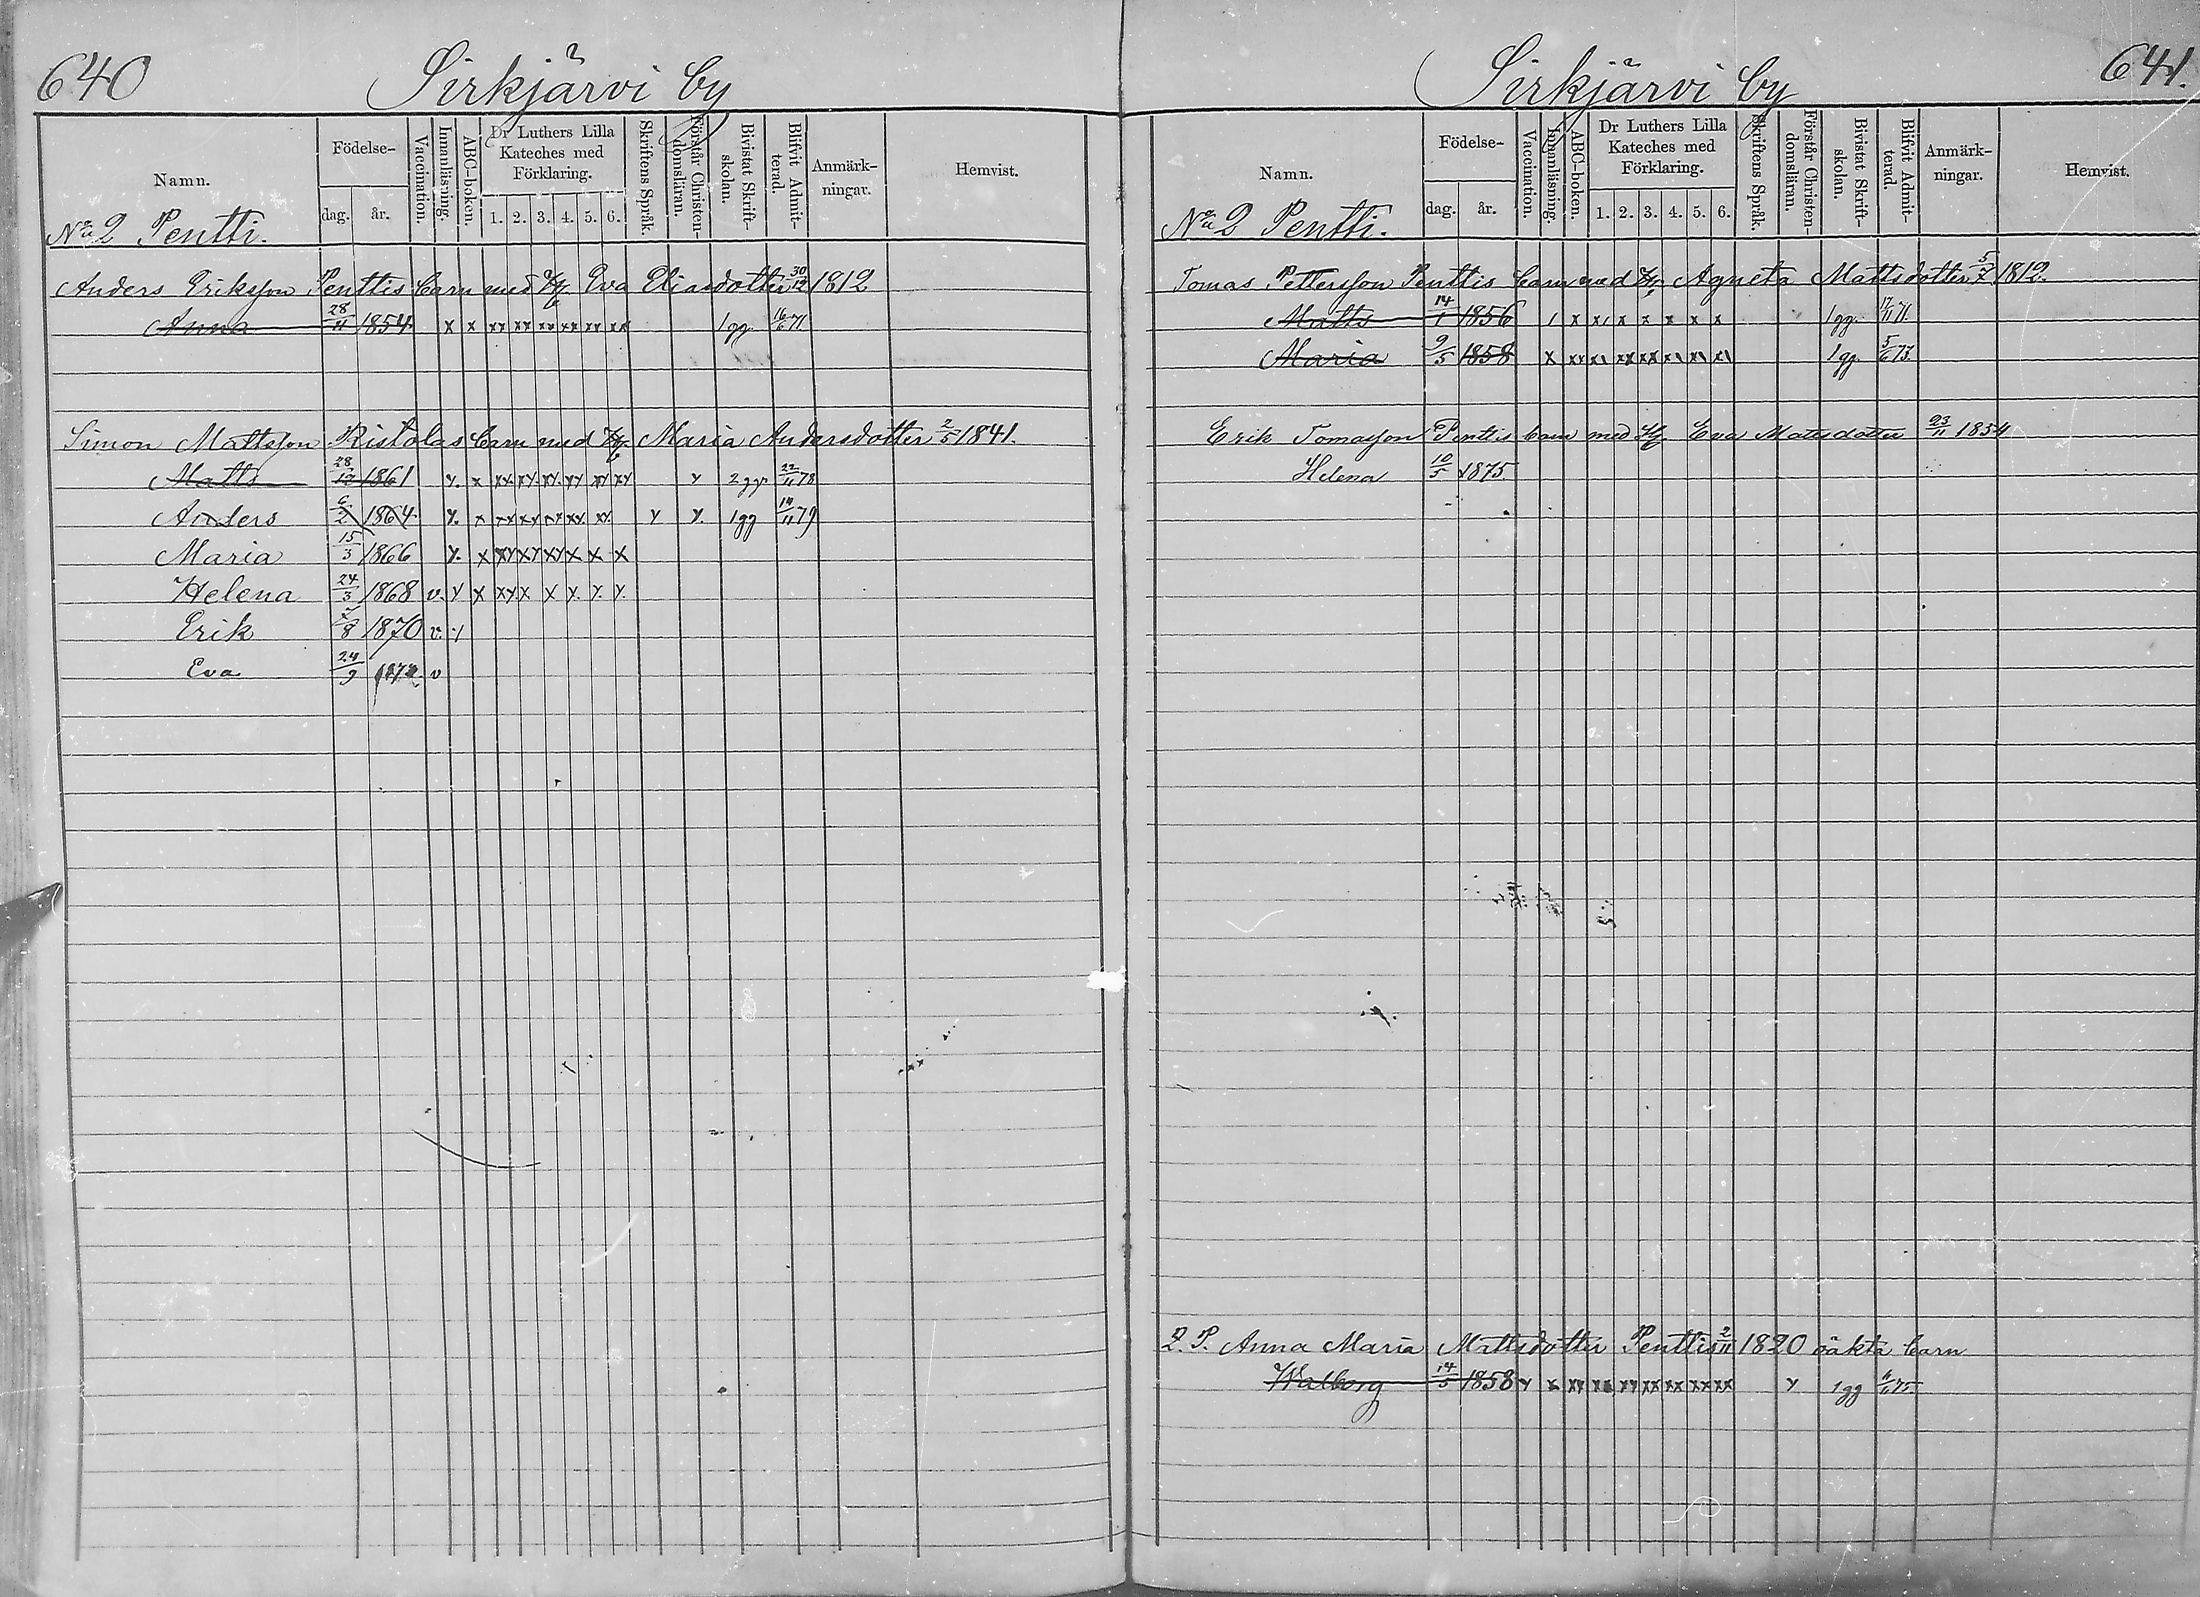 640
Sirkjärvi by
Namn.
Födelse-
dag.
år.
Vaccination.
Innanläsning.
ABC-boken.
Dr Luthers Lilla
Kateches med
Förklaring.
1. 2. 3. 4. 5. 6.
Skriftens Språk.
Förstår Christen-
domsläran.
Bivistat Skrift-
skolan.
Blifvit Admit-
terad.
Anmärk-
ningar.
Hemvist.
No 2 Pentti.
Anders Eriksson Penttis barn med Eva Eliasdotter 30/12 1812
Anna 28/11 1854 x x xx xx xx xx xx xx 1 gg. 16/6 71
Simon Mattsson Ristolas barn med Maria Andersdotter 2/5 1841.
Matts 28/12 1861 x. x xx xx xx xx xx xx x 2 ggr 22/11 78
Anders 6/2 1864 x. x xx xx xx xx xx. x x. 1 gg 14/11 79
Maria 15/3 1866 x. x xx xx xx x x x
Helena 24/3 1868 v. x x xx x x x. x. x.
Erik 7/8 1870 v.
Eva 24/9 v
641.
Sirkjärvi by
Namn.
Födelse-
dag.
år.
Vaccination.
Innanläsning.
ABC-boken.
Dr Luthers Lilla
Kateches med
Förklaring.
1. 2. 3. 4. 5. 6.
Skriftens Språk.
Förstår Christen-
domsläran.
Bivistat Skrift-
skolan.
Blifvit Admit-
terad.
Anmärk-
ningar.
Hemvist.
No 2 Pentti.
Tomas Pettersson Penttis barn med Agneta Mattsdotter 5/7 1812.
Matts 14/1 1856 / x x/ x x x x x 1 gg. 17/11 71.
Maria 9/5 1858 x xx x\ xx xx x\ x\ x\ 1 gg. 5/6 73.
Erik Tomasson Penttis barn med Eva Matsdotter 23/11 1854
Helena 10/5 1875.
Q. P. Anna Maria Mattsdotter Penttis 2/11 1820 oäkta barn
Walborg 14/5 1858 x x xx xx xx xx xx xx xx x 1 gg 75.